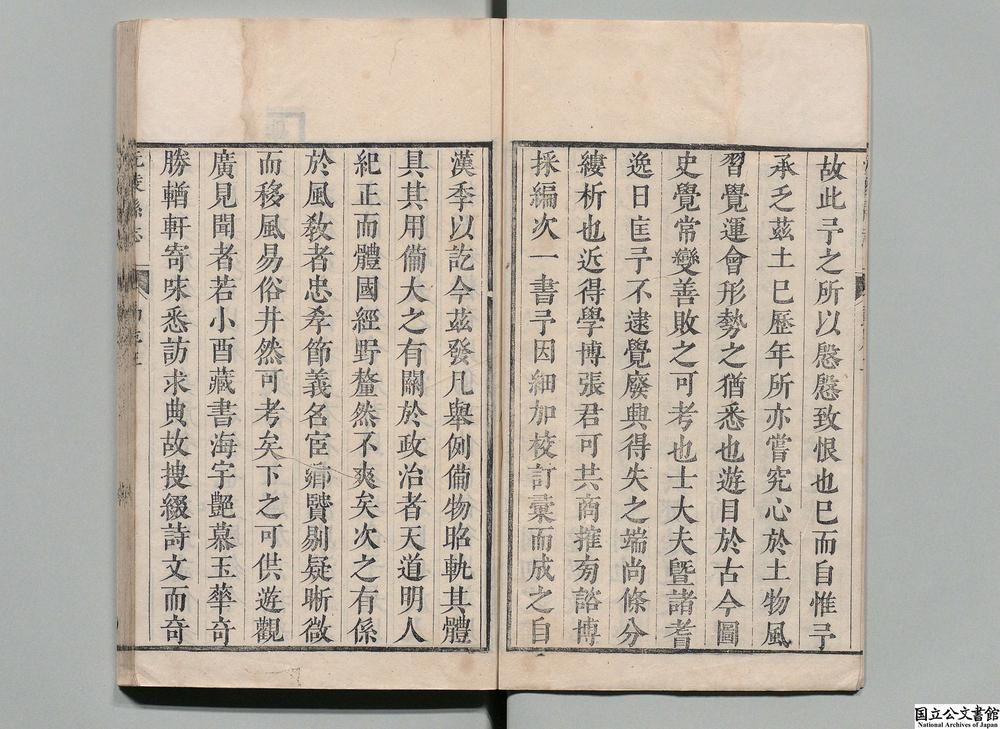 故此予之所以慇慇致恨也已而自惟予
承乏茲土已歷年所亦嘗究心於土物風
習覺運會形勢之猶悉也遊目於古今圖
史覺常變善敗之可考也士大夫暨諸耆
逸日匡予不逮覺廢興得失之端尚條分
縷析也近得學博張君可共商搉旁諮博
採編次一書予因細加校訂彙而成之自
漢季以訖今茲發凡舉例備物昭軌其體
具其用備大之有關於政治者天道明人
紀正而體國經野釐然不爽矣次之有係
於風敎者忠孝節義名宦鄕賢剔疑晰微
而移風易俗井然可考矣下之可供遊觀
廣見聞者若小酉藏書海宇艷慕玉華奇
勝輶軒寄咏悉訪求典故搜綴詩文而奇
沅陵縣志
国立公文書館
National Archives of Japan